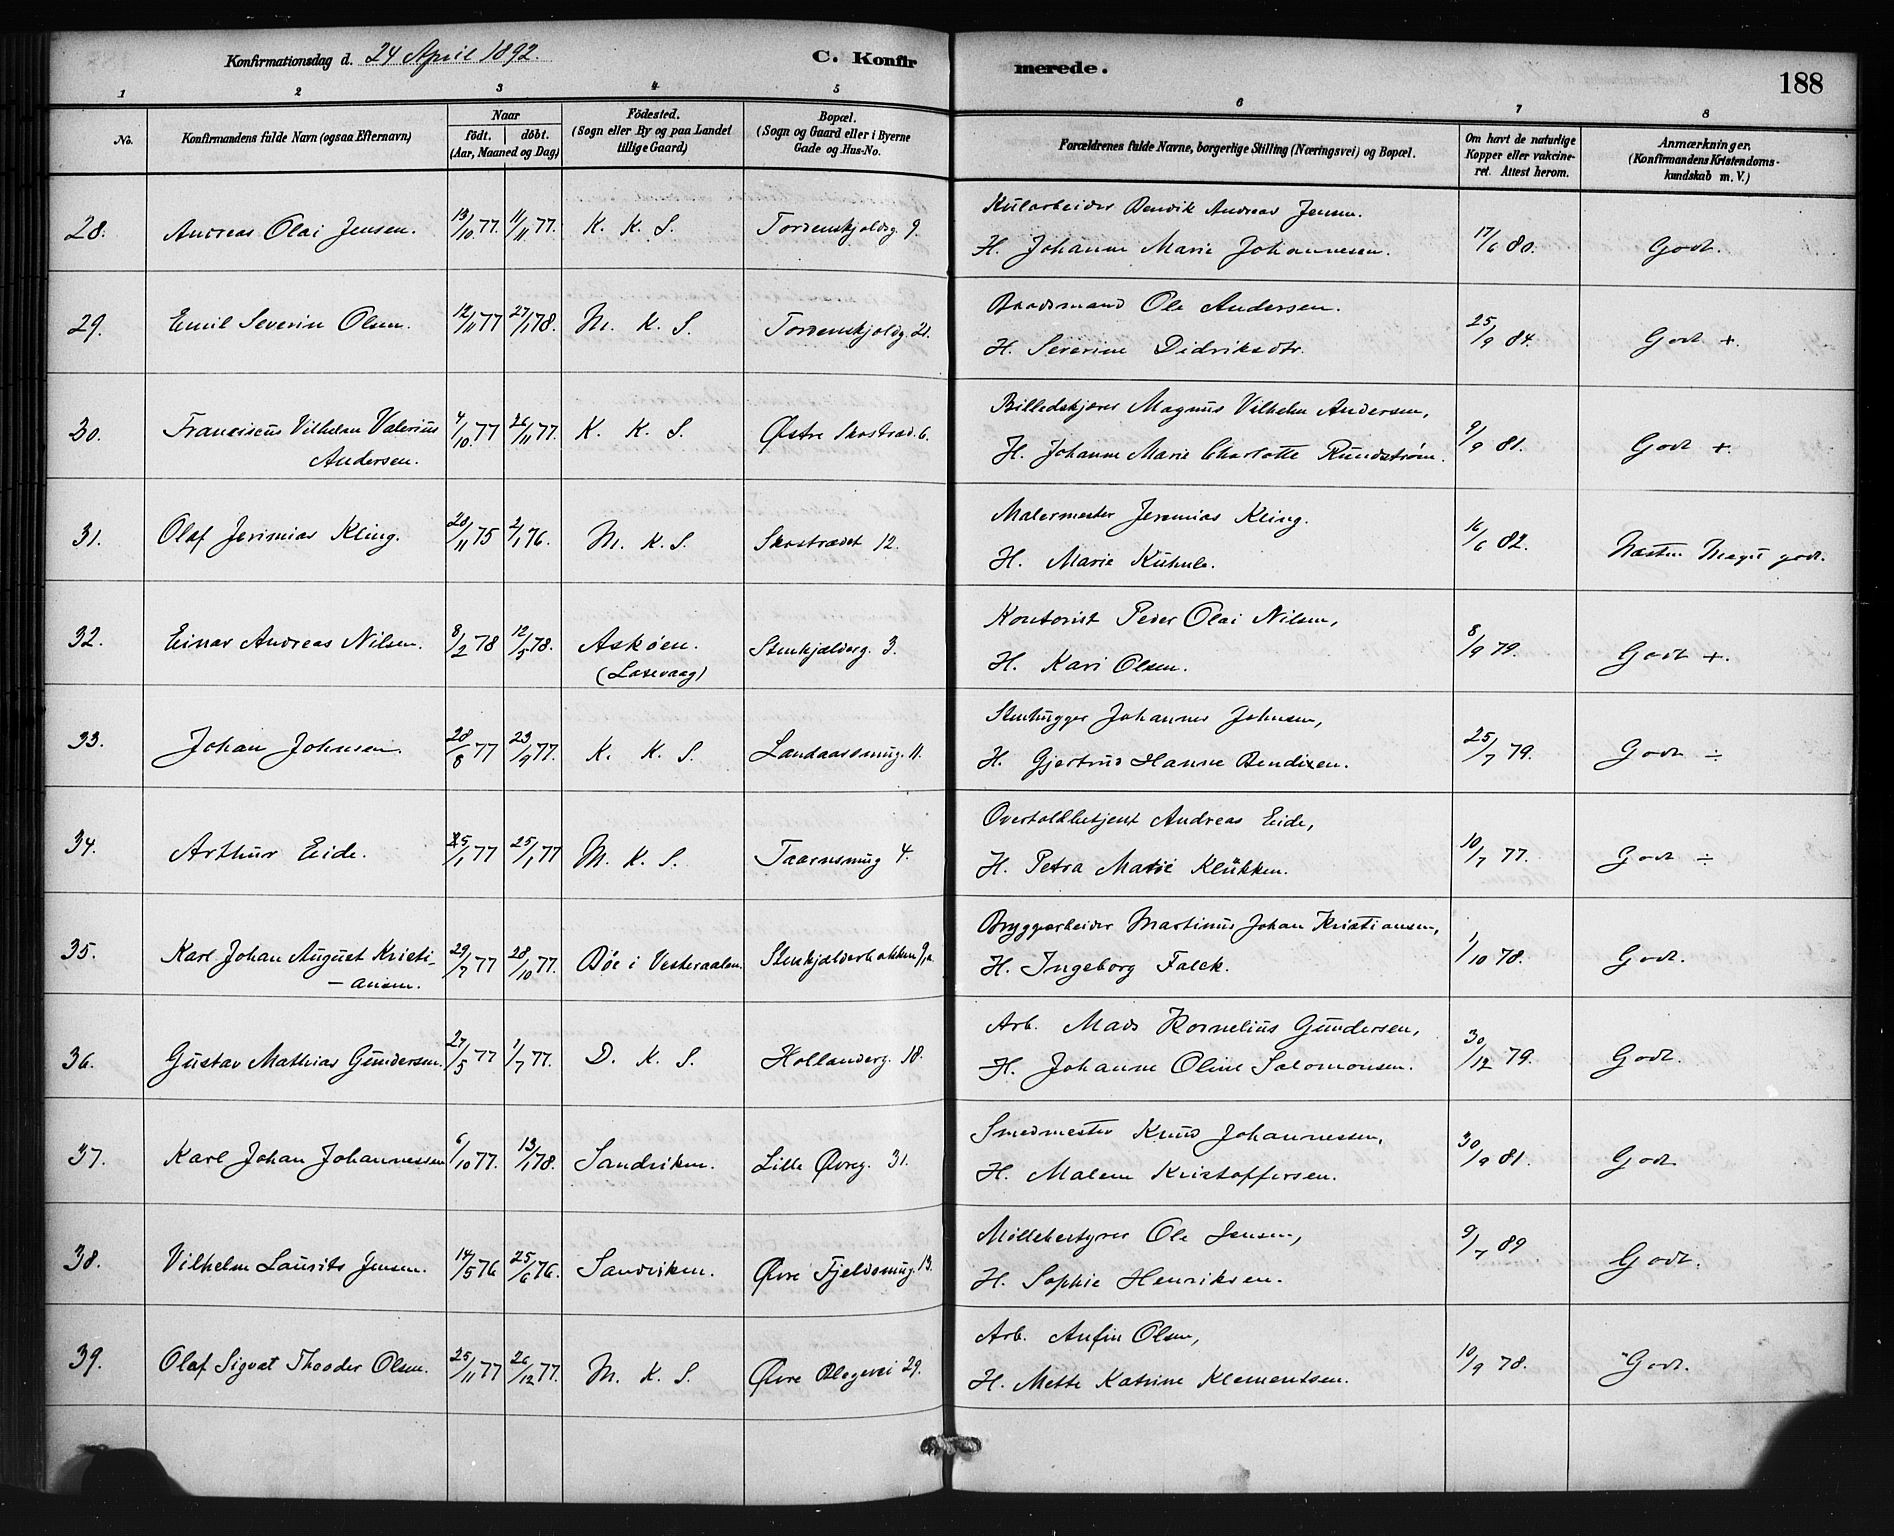 Konfirmationsdag d. 24 April 1892.
C. Konfirmerede.
188
1 2 3 4 5 6 7 8
No.
Konfirmandens fulde Navn (ogsaa Efternavn)
Naar
födt. döbt.
(Aar, Maaned og Dag)
Födested.
(Sogn eller By og paa Landet
tillige Gaard)
Bopæl.
(Sogn og Gaard eller i Byerne
Gade og Hus-No.
Forældrenes fulde Navne, borgerlige Stilling (Næringsvei) og Bopæl.
Om havt de naturlige
Kopper eller vakcine-
ret. Attest herom.
Anmærkninger,
(Konfirmandens Kristendoms-
kundskab m. V.)
28. Andreas Olai Jensen. 13/10 77. 11/11 77. K. K. S. Tordenskjoldsg. 9. Kularbeider Bendik Andreas Jensen.
H. Johanne Marie Johannesen. 17/6 80. Godt.
29. Emil Severin Olsen. 12/11 77 27/1 78. M. K. S. Tordenskjoldsg. 21. Baadsmand Ole Andersen.
H. Severine Didriksdtr. 25/9 84. Godt +.
30. Franciscus Vilhelm Valerius
Andersen. 4/10 77 26/11 77. K. K. S. Østre Skostræd. 6. Billedskjærer Magnus Vilhelm Andersen,
H. Johanne Marie Charlotte Rundström. 9/9 81. Godt +.
31. Olaf Jerimias Kling. 20/11 75 2/1 76. M. K. S. Skostrædet 12. Malermester Jeremias Kling.
H. Marie Kuhnle. 16/6 82. Næsten Meget godt.
32. Einar Andreas Nilsen. 8/2 78 12/5 78. Askøen.
(Laxevaag) Stenkjælderg. 3. Kontorist Peder Olai Nilsen,
H. Kari Olsen. 8/9 79. Godt +.
33. Johan Johnsen. 28/8 77 23/9 77. K. K. S. Landaasmug. 11. Stenhugger Johannes Johnsen,
H. Gjertrud Hanne Bendixen. 25/7 79. Godt ÷
34. Arthur Eide. /1 77 25/1 77 M. K. S. Taarnsmug 4. Overtoldbetjent Andreas Eide,
H. Petra Marie Klükken. 10/7 77. Godt ÷
35. Karl Johan August Kristi-
- ansen. 29/7 77 28/10 77. Bøe i Vesteraalen. Stenkjælderbakken 9,a. Bryggearbeider Martinus Johan Kristiansen,
H. Ingeborg Falck. 1/10 78. Godt.
36. Gustav Mathias Gundersen. 27/5 77 1/7 77. D. K. S. Hollenderg. 18. Arb. Mads Kornelius Gundersen,
H. Johanne Oline Salomonsen. 30/12 79. Godt.
37. Karl Johan Johannessen 6/10 77. 13/1 78. Sandviken. Lille Øvreg. 31. Smedmester Knud Johannessen,
H. Malene Kristoffersen. 30/9 81. Godt
38. Vilhelm Laurits Jensen. 14/5 76 25/6 76. Sandviken. Øvre Fjeldsmug. 13. Møllebestyrer Ole Jensen,
H. Sophie Henriksen. 9/7 89 Godt.
39. Olaf Sigvat Thoodor Olsen. 25/11 77 26/12 77. M. K. S. Øvre Blegevei 29. Arb. Anfin Olsen,
H. Mette Katrine Klementsen. 10/9 78. Godt.